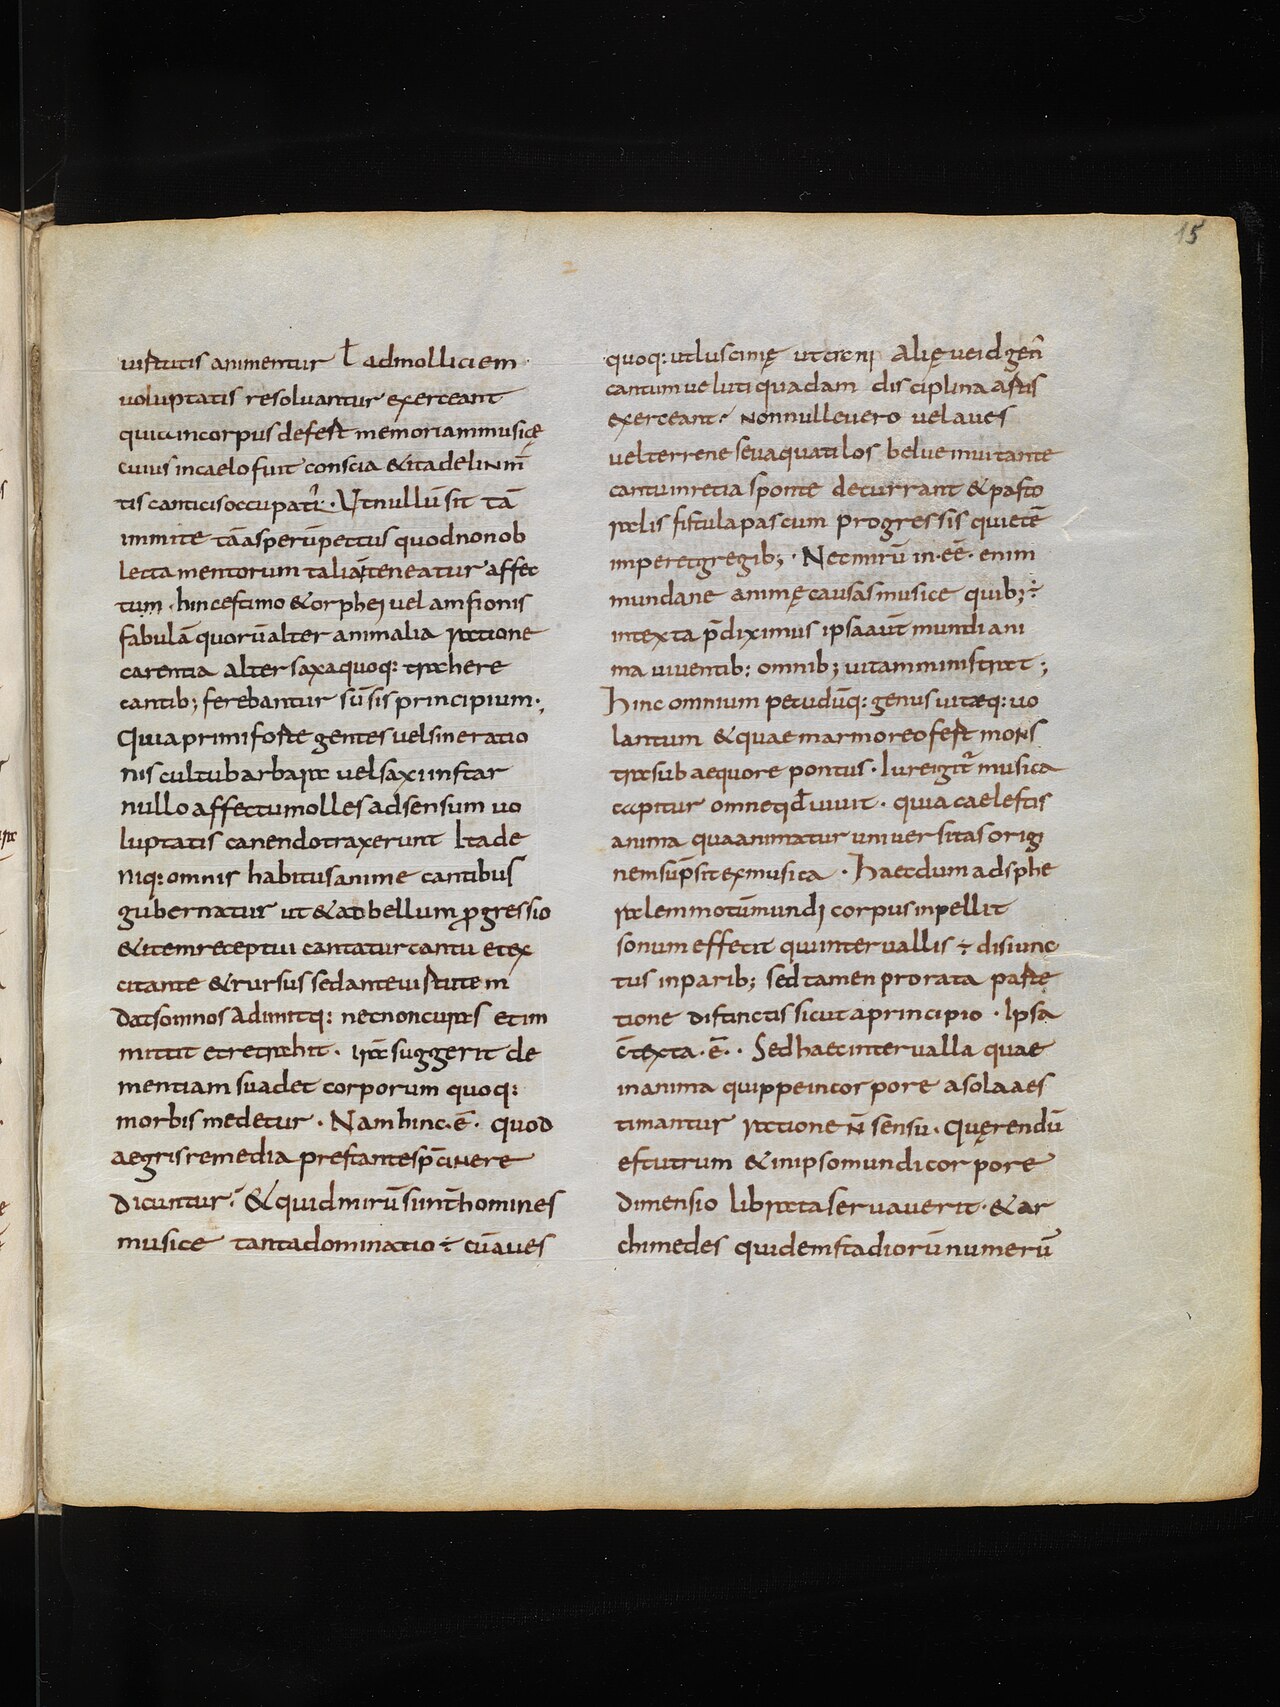 15
uirtutis animentur ł ad molliciem
uoluptatis resoluantur exerceant
quia in corpus defert memoriam musicę
cuius in caelo fuit conscia & ita deliNim̄
tis canticis occupat͛ · Ut nullū sit tā
immite tā asperū pectus quod non ob
lectamentorum taliū teneatur affec
tum · hinc estimo & orphei uel amfionis
fabulā quorū alter animalia ratione
carentia alter saxa quoq: trahere
cantib; ferebantur sūsis principium ·,
Quia primi forte gentes uel sine ratio
nis cultu barbara uel saxi instar
nullo affectu molles ad sensum uo
luptatis canendo traxerunt Ita de
niq: omnis habitus anime cantibus
gubernatur ut & ad bellum ꝓgressio
& item receptui cantatur cantu et ex
citante & rursus sedante uirtutem
dat somnos adimitq: necnon curas et im
mittit et retrahit · irā suggerit de
mentiam suadet corporum quoq:
morbis medetur · Nam hinc · ē · quod
aegris remedia prestantes p̄ciNere
dicuntur · & quid mirū si int̄ homines
musice tanta dominatio ÷ cū aues
quoq: ut luscinię ut cicni Alię ue id geñ
cantum ueluti quadam disciplina artis
exerceant · Nonnulle uero uel aues
uel terrene seu aquatilos belue inuitante
cantu in retia sponte decurrant & pasto
ralis fistula pascum progressis quietē
imperet gregib; · Nec mirū in · eē · enim
mundane animę causas musice quib; ÷
intexta p̄diximus ipsa aut̄ mundi ani
ma uiuentib: omnib; uitam ministrat ;
hinc omnium pecudūq: genus uitæq: uo
lantum & quae marmoreo fert moNs
tra sub aequore pontus · Iure igit͛ musica
capitur omne qđ uiuit · quia caelestis
anima qua animatur uniuersitas orig
nem sūpsit ex musica · haec dum ad sphe
ralem motū mundi corpus inpellit
sonum effecit qui interuallis ÷ disiunc
tus inparib; sed tamen pro rata parte
tione distinctis sicut a principio · Ipsa
c̄texta · ē · · Sed haec interualla quae
in anima quippe incorpore a sola aes
timantur ratione n̄ sensu · Quęrendū
est utrum & in ipso mundi corpore
dimensio librata seruauerit · & ar
chimedes quidem stadiorū numerū